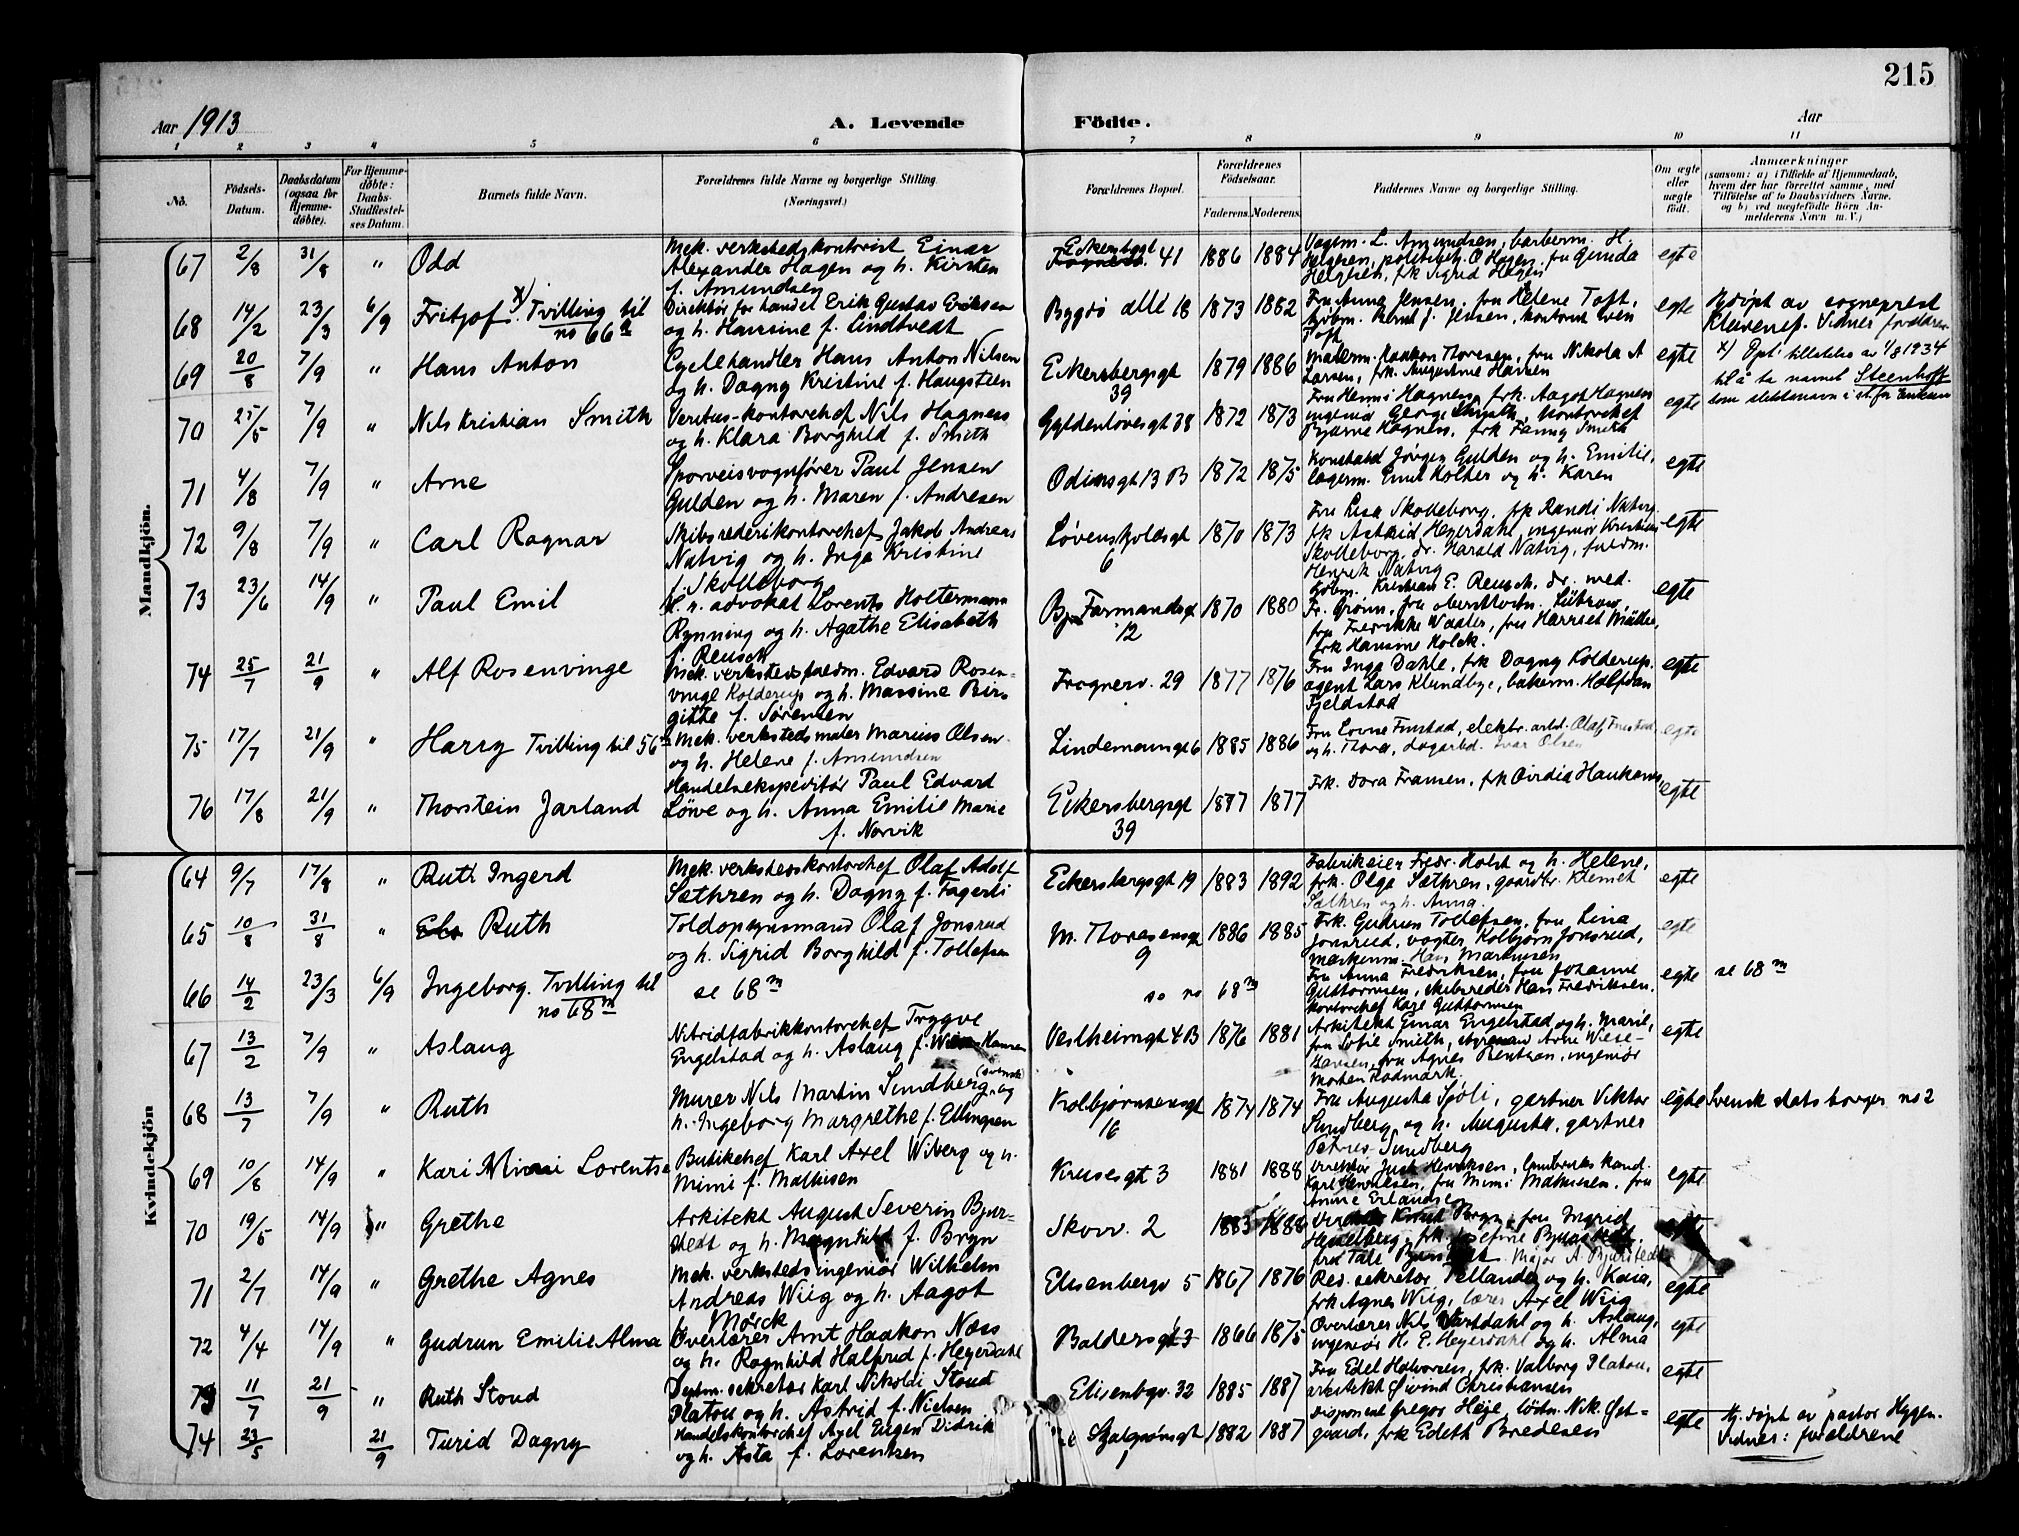 215
Aar 1913 A. Levende Födte. Aar
1 2 3 4 5 6 7 8 9 10 11
No. Födsels-Datum. Daabsdatum (ogsaa for Hjemmedöbte). For Hjemmedöbte: Daabs-Stadfæstelses Datum. Barnets fulde Navn. Forældrenes fulde Navne og borgerlige Stilling. (Næringsvei.) Forældrenes Bopæl. Forældrenes Födselsaar. Faderens. Moderens. Faddernes Navne og borgerlige Stilling. Om ægte eller uægte födt. Anmærkninger (saasom: a) i Tilfælde af Hjemmedaab, hvem der har forrettet samme, med Tilföielse af to Daabsvidners Navne. og b) ved uægtefödte Börn Anmelderens Navn m. V.)
Mandkjön.
67 2/8 31/8 " Odd Mek. verkstedskontorist Einar Alexander Hagen og h. Kirsten f. Amundsen Eckersbgt 41 1886 1884 Vognm. L. Amundsen, barberm. H. Helgesen, politibtj. O Hagen, fru Gunda Helgesen, frk Sigrid Hagen egte
68 14/2 23/3 6/9 Fritjof x) Tvilling til no 66 Direktör for handel Erik Gustav Eriksen og h. Hansine f. Lindtvedt Bygdö allé 18 1873 1882 Fru Anna Jensen, fru Helene Toft, kjøbm. Bernt J. Jensen, kontorist Sven Toft egte Hjdöpt av sogneprest Klaveness. Vidner foreldrene
69 20/8 7/9 " Hans Anton Cyclehandler Hans Anton Nilsen og h. Dagny Kristine f. Haugsteen Eckersbergsgt 39 1879 1886 Malerm. Haakon Thoresen, fru Nikola A Larsen, frk. Augustine Hansen egte x) Opt. tillatelse av 1/8 1934 til å ta navnet Steenhoff som slektsnavn i st. for Eriksen
70 25/5 7/9 " Nils Kristian Smith Veritas-kontorchef Nils Hagness og h. Klara Borghild f. Smith Gyldenløvesgt 38 1872 1873 Fru Henni Hagness, frk. Aagot Hagness ingeniör George Smith, kontorchef Bjarne Hagness, frk Fanny Smith egte
71 4/8 7/9 " Arne Sporveisvognfører Paul Jensen Gulden og h. Maren f. Andresen Odinsgt 13 B 1872 1875 Konstabel Jörgen Gulden og h. Emilie, lagerm. Emil Holter og h. Karen egte
72 9/8 7/9 " Carl Ragnar Skibsrederikontorchef Jakob Andreas Natvig og h. Inga Kristine f. Skolleborg Løvenskjoldsgt 6 1870 1873 Fru Lisa Skolleborg, frk Randi Natvig, frk Astrid Heyerdahl, ingeniör Kristian Skolleborg, dr. Harald Natvig, fuldm. Henrik Natvig egte
73 23/6 14/9 " Paul Emil H. r. advokat Lorents Holtermann Rynning og h. Agathe Elisabeth f. Reusch Bj. Farmandsgt 12 1870 1880 Kjøbm. Kristian E. Reusch, dr. med. Fr. Grönn, fru oberstløitn. Lützow, fru Fredrikke Waaler, fru Harriet Müller, frk Hansine Holck. egte
74 25/7 21/9 " Alf Rosenvinge Mek. verkstedsfuldm. Edvard Rosenvinge Kolderup og h. Massine Birgitte f. Sørensen Frognerv. 29 1877 1876 Fru Inga Dahle, frk Dagny Kolderup, agent Lars Klundbye, bakerm. Halfdan Fjeldstad egte
75 17/7 21/9 " Harry Tvilling til 56 Mek. verkstedsmaler Marius Olsen og h. Helene f. Amundsen Lindemannsgt 6 1885 1886 Fru Lovne Finstad, elektr. arbd. Olaf Finstad og h. Thora, dagarbd. Ivar Olsen egte
76 17/8 21/9 " Thorstein Jarland Handelsekspeditör Paul Edvard Löwe og h. Anna Emilie Marie f. Norvik Eckersbergsgt 39 1877 1877 Frk. Dora Fransen, frk Ovidia Haukanes egte
Kvindekjön
64 9/7 17/8 " Ruth Ingerd Mek. verkstedskontorchef Olaf Adolf Sæthren og h. Dagny f. Fagerli Eckersbergsgt 19 1883 1892 Fabrikeier Fredr. Holst og h. Helene, frk. Olga Sæthren, gaardbr. Klemet Sæthren og h. Anna. egte
65 10/8 31/8 " Ruth Toldopsynsmand Olaf Jonsrud og h. Sigrid Borghild f. Tollefsen M. Thoresensgt 9 1886 1885 Frk. Gudrun Tollefsen, fru Lina Jonsrud, vogter Kolbjørn Jonsrud, maskinm. Hans Martinsen egte
66 14/2 23/3 6/9 Ingeborg. Tvilling til no 68 m se 68 m se no 68 m Fru Anna Fredriksen, fru Johanne Guttormsen, skibsreder Hans Fredriksen, kontorchef Karl Guttormsen egte se 68 m
67 13/2 7/9 " Aslaug Nitridfabrikkontorchef Trygve Engelstad og h. Aslaug f. Wiese-Hansen Vestheimgt 4 B 1876 1881 Arkitekt Einar Engelstad og h. Marie, fru Sofie Smith, styrmand Arne Wiese-Hansen, fru Agnes Berntsen, ingeniör Morten Rodmark. egte
68 13/7 7/9 " Ruth Murer Nils Martin Sundberg (svensk) og h. Ingeborg Margrethe f. Ellingsen Kolbjørnsensgt 16 1874 1874 Fru Augusta Sjöli, gartner Viktor Sundberg og h. Augusta, gartner Petrus Sundberg egte Svensk statsborger no 2
69 10/8 14/9 " Kari Mimi Lorentse Butikchef Karl Axel Wiberg og h. Mimi f. Mathisen Krusesgt 3 1881 1888 Direktör Just Henriksen, landbrukskand. Karl Henriksen, fru Mimi Mathisen, fru Annie Erlandsen egte
70 19/5 14/9 " Grethe Arkitekt August Severin Bjurstedt og h. Magnhild f. Bryn Skovv. 2 1883 1888 Knut Bryn, fru Ingrid Hesselberg, frk Josefine Bjurstedt, frk Talle Bjurstedt Major A. Bjurstedt
71 2/7 14/9 " Grethe Agnes Mek. verkstedsingeniör Wilhelm Andreas Wiig og h. Aagot f. Mörck Elisenbergv 5 1867 1876 Red. sekretær Tellander og h. Kaia, frk Agnes Wiig, lærer Axel Wiig egte
72 4/4 14/9 " Gudrun Emilie Alma Overlærer Arnt Haakon Næss og h. Ragnhild Halfrid f. Heyerdahl Baldersgt 3 1866 1875 Overlærer Nils Vartdahl og h. Aslaug, ingeniör H. E. Heyerdahl og h. Alma egte
73 11/7 21/9 " Ruth Stoud Sekretær Karl Nikolai Stoud Platou og h. Astrid f. Nielsen Elisenbgv. 32 1885 1887 Fru Edel Halvorsen, frk. Valborg Platou, arkitekt Eivind Christiansen egte
74 23/5 21/9 Turid Dagny Handelskontorchef Axel Eugen Didrik og h. Asta f. Lorentzen 1 1882 1887 Disponent Gregor Heje, löitn. Nik. Østgaard, frk Edeth Bredesen egte Hj. döpt av pastor Hygen. Vidner: foreldrene